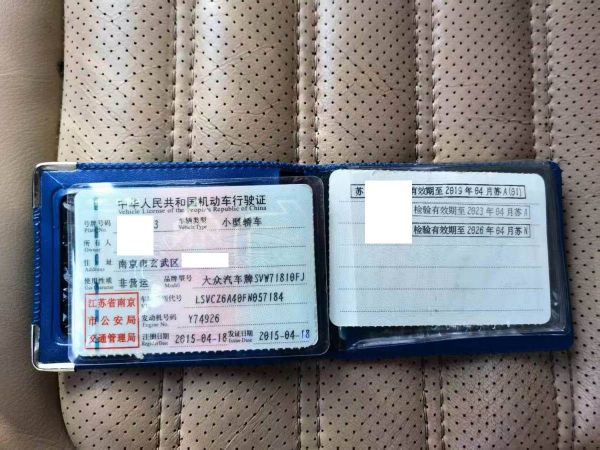 中华人民共和国机动车行驶证
Vehicle License of the People's Republic of China
号牌号码 3 车辆类型 小型轿车
Plate No. Vehicle Type
所有人
Owner
住址 南京市玄武区
Address
使用性质 非营运 品牌型号 大众汽车牌SVW71810FJ
Model
江苏省南京
市公安局
交通管理局
代号 LSVCZ6A40FN057184
发动机号码 Y74926
Engine No.
注册日期 2015-04-18 发证日期 2015-04-18
Register Date Issue Date
苏 有效期至2019年04月苏A(01)
检验有效期至2023年04月苏A
检验有效期至2026年04月苏N